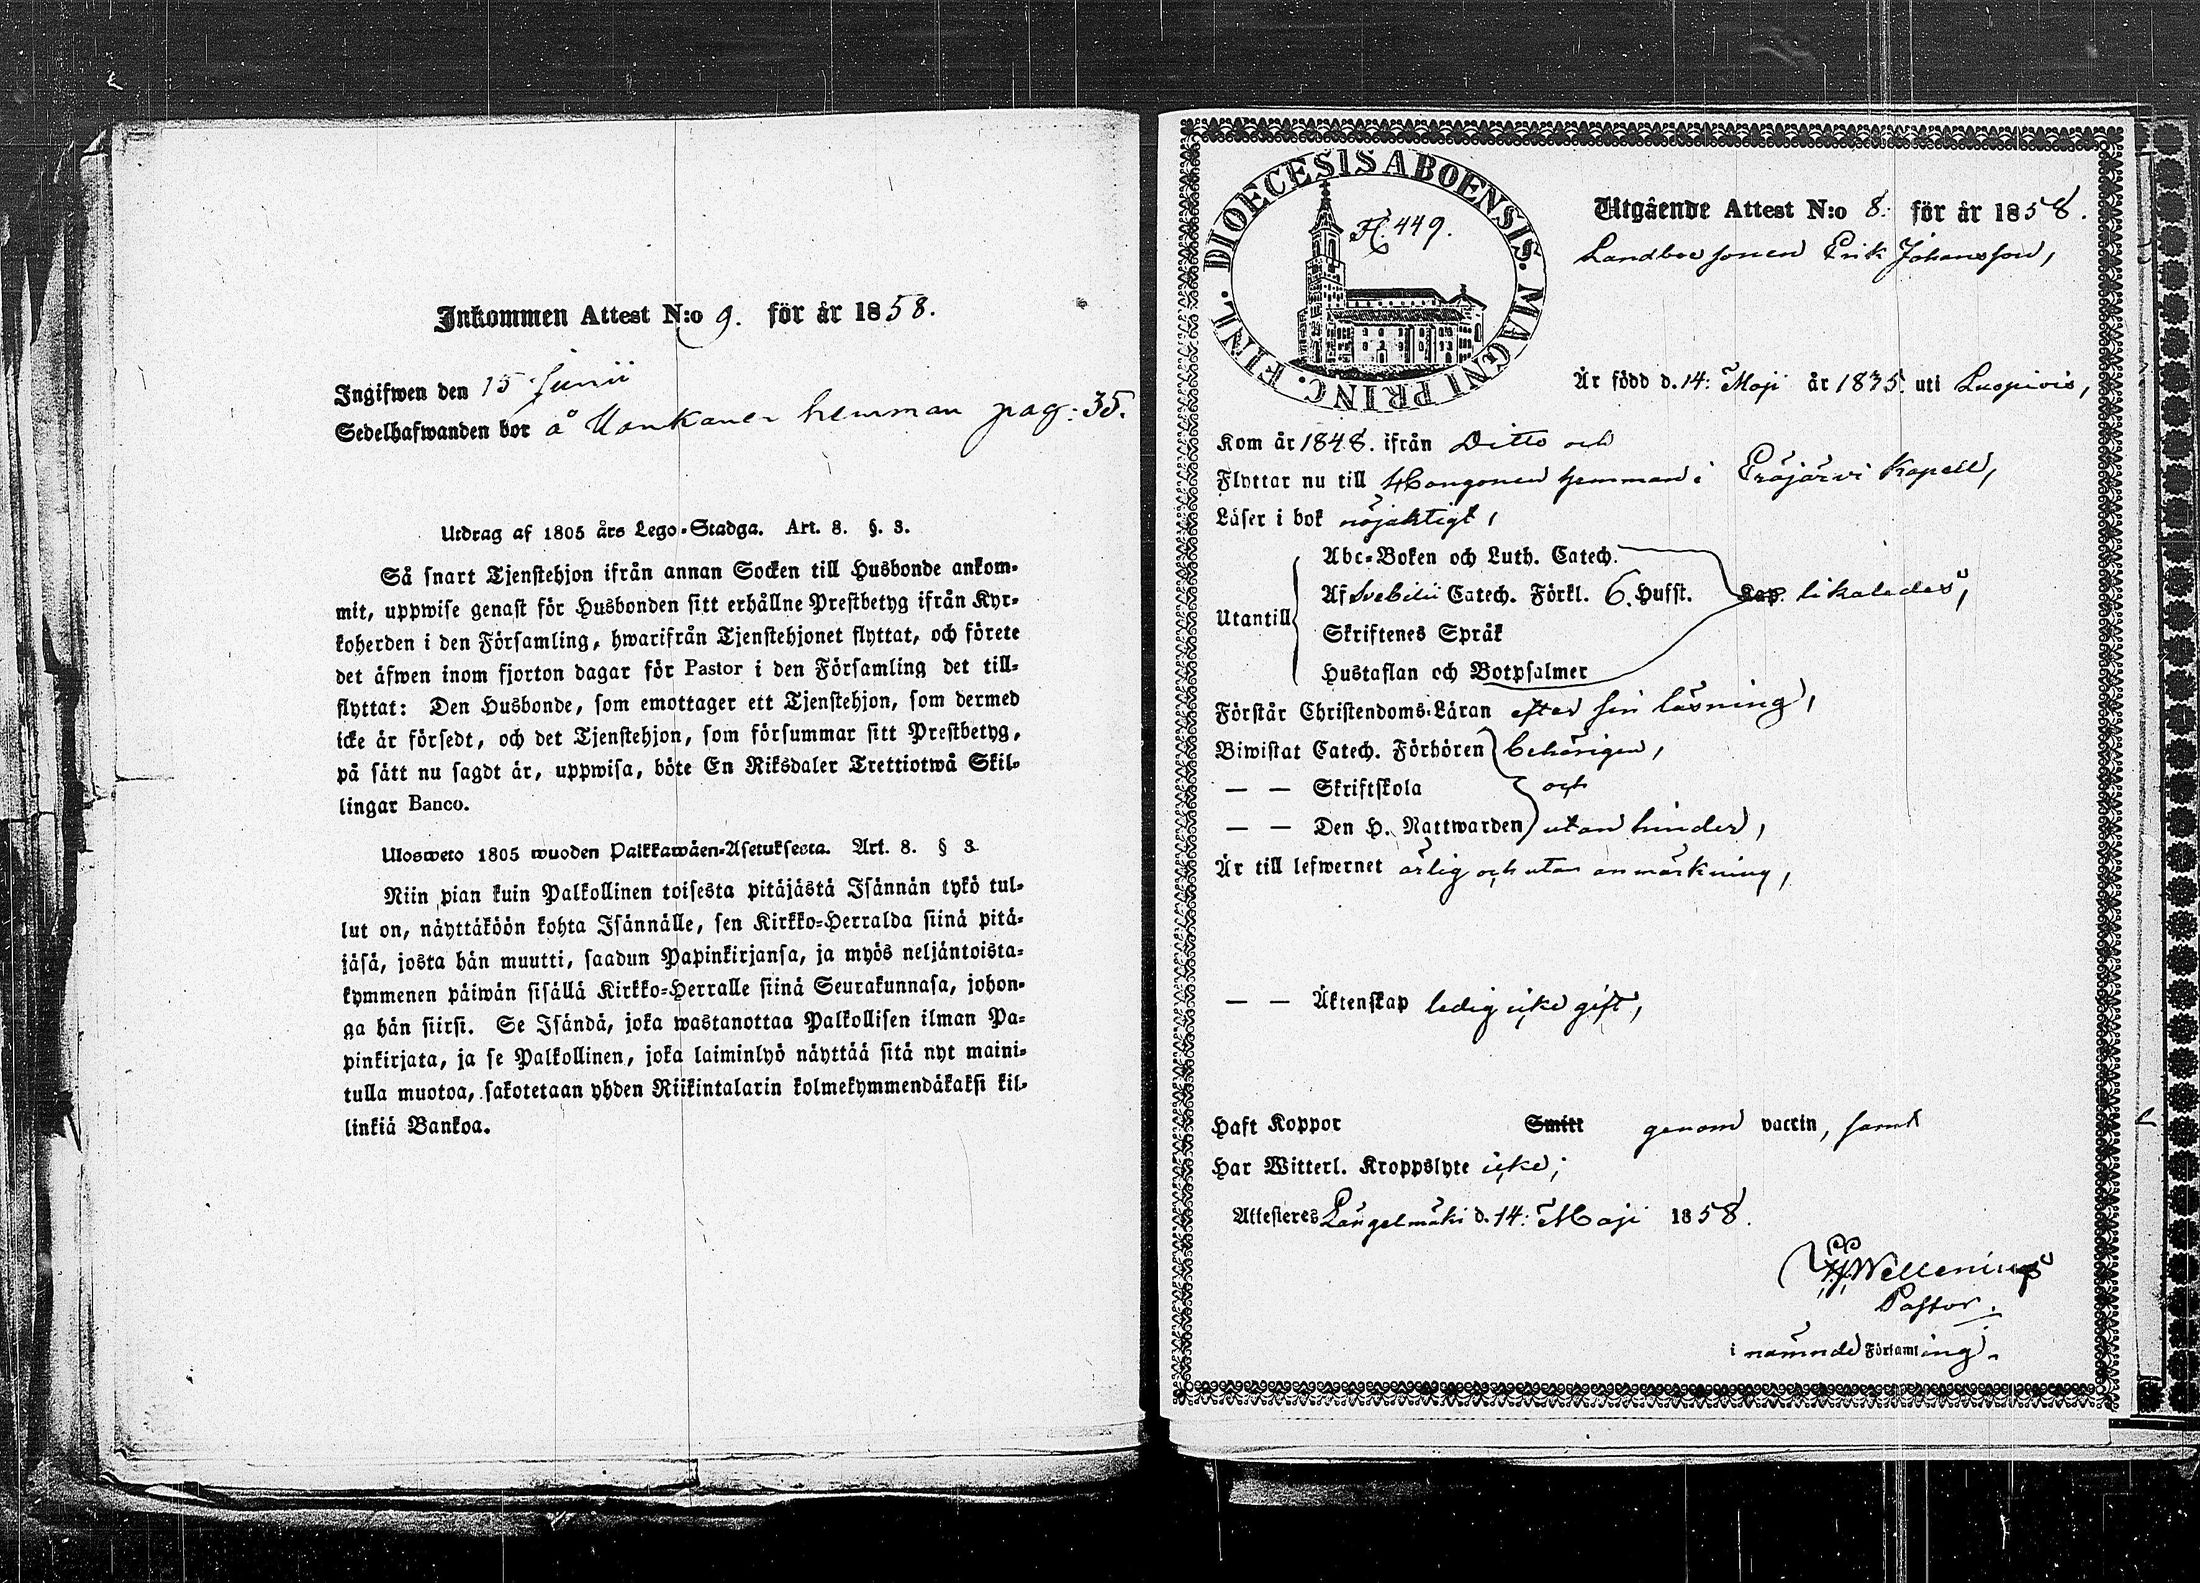 Inkommen Attest N:o 9. för år 1858.
Ingifwen den 15 Junii
Sedelhafwanden bor å Uonkaner hemman pag: 35.
Utdrag af 1805 års Lego-Stadga. Art. 8. §. 3.
Så snart Tjenstehjon ifrån annan Socken till Husbonde ankom-
mit, uppwise genast för Husbonden sitt erhållne Prestbetyg ifrån Kyr-
koherden i den Församling, hwarifrån Tjenstehjonet flyttat, och förete
det äfwen inom fjorton dagar för Pastor i den Församling det till-
flyttat: Den Husbonde, som emottager ett Tjenstehjon, som dermed
icke är försedt, och det Tjenstehjon, som försummar sitt Prestbetyg,
på sätt nu sagdt är, uppwisa, böte En Riksdaler Trettiotwå Skil-
lingar Banco.
Ulosweto 1805 wuoden Palkkawäen-Asetuksesta. Art. 8. § 3.
Niin pian kuin Palkollinen toisesta pitäjästä Isännän tykö tul-
lut on, näyttäköön kohta Isännälle, sen Kirkko-Herralda siinä pitä-
jäsä, josta hän muutti, saadun Papinkirjansa, ja myös neljäntoista-
kymmenen päiwän sisällä Kirkko-Herralle siinä Seurakunnasa, johon-
ga hän siirsi. Se Isändä, joka wastanottaa Palkollisen ilman Pa-
pinkirjata, ja se Palkollinen, joka laiminlyö näyttää sitä nyt maini-
tulla muotoa, sakotetaan yhden Riikintalarin kolmekymmendäkaksi kil-
linkiä Bankoa.
DIOECESIS ABOENSIS. MAGNI PRINC. FINL.
H. 449.
Utgående Attest N:o 8. för år 1858.
Landboesonen Erik Johansson,
Är född d. 14: Maji år 1835 uti Luopiois,
Kom år 1848. ifrån Ditto och
Flyttar nu till Hongonen hemman i Eräjärvi Kapell,
Läser i bok nöjaktigt,
Utantill
Abc-Boken och Luth. Catech.
Af Svebilii Catech. Förkl. 6. Hufst. Kap. likaledes,
Skriftenes Språk
Hustaflan och Botpsalmer
Förstår Christendoms-Läran efter sin läsning,
Biwistat Catech. Förhören behörigen,
— — Skriftskola och
— — Den H. Nattwarden utan hinder,
Är till lefwernet ärlig och utan anmärkning,
— — Äktenskap ledig icke gift,
Haft Koppor Smitt genom vaccin, samt
Har Witterl. Kroppslyte icke;
Attesteres Längelmäki d. 14: Maji 1858.
Wellenius
Pastor.
i nämnde Församling.